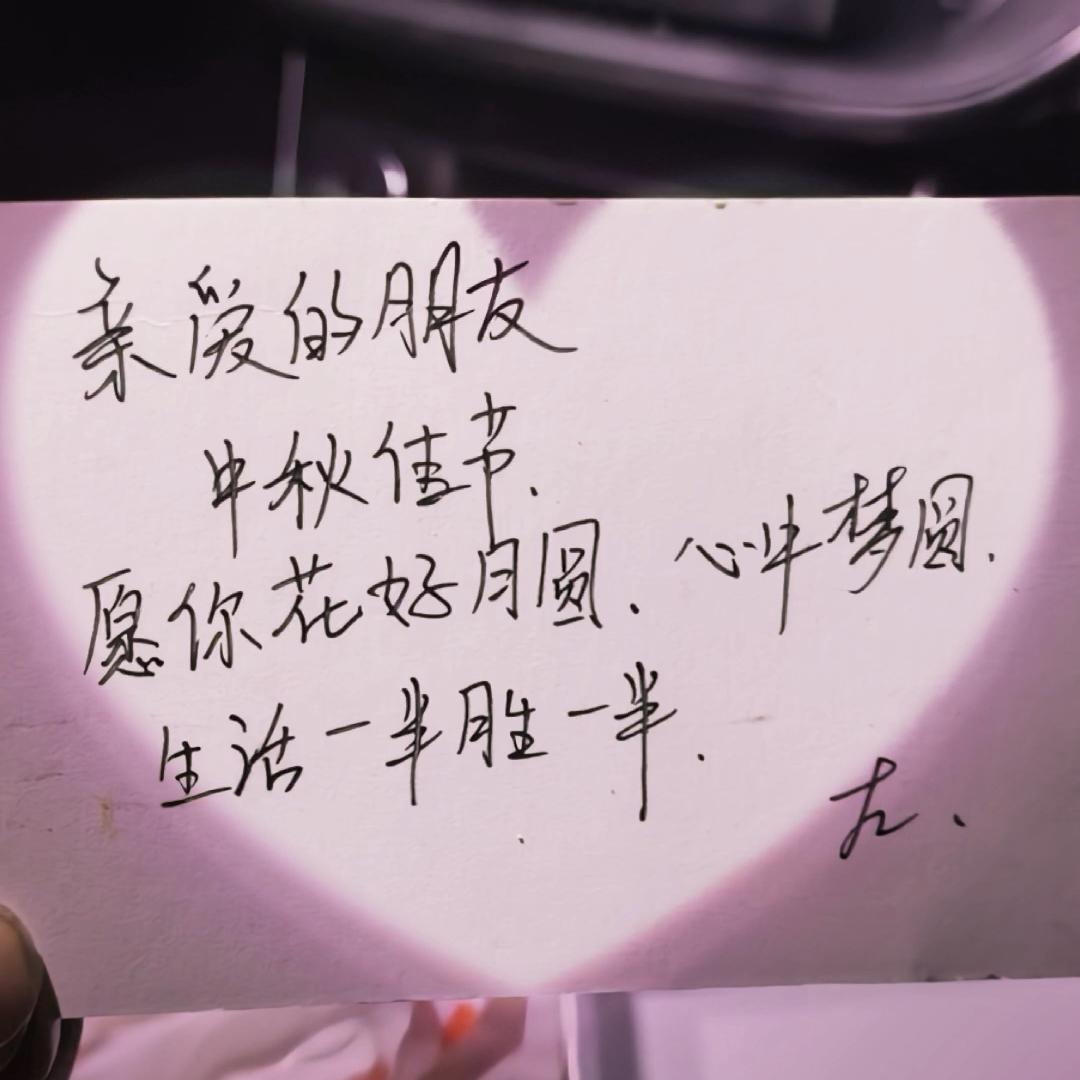 亲爱的朋友
中秋佳节、
愿你花好月圆、心中梦圆.
生活一半胜一半.
左、